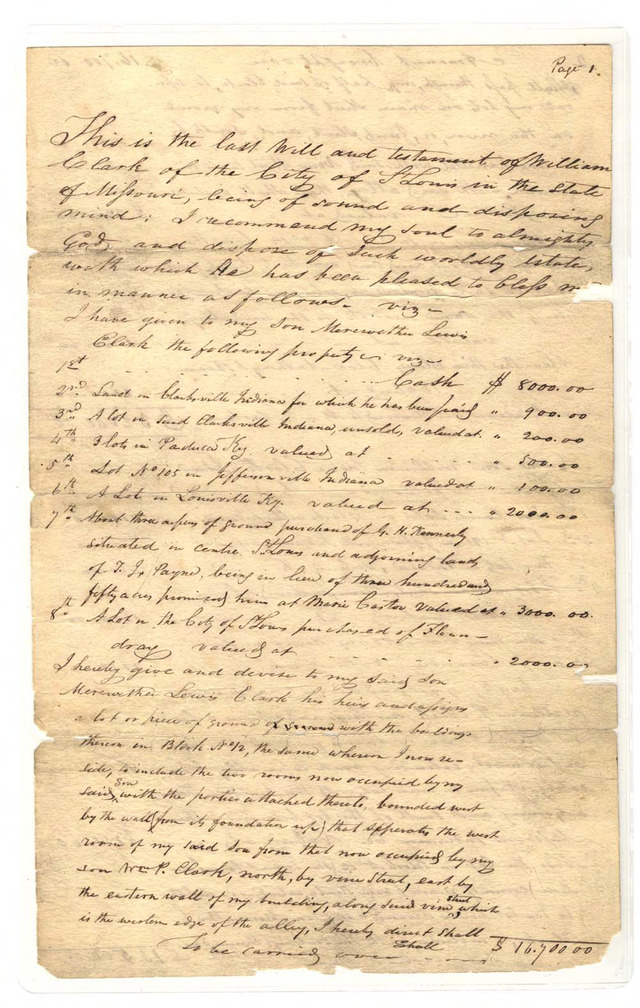 Page 1.
This is the last Will and testament of William
Clark of the City of St Louis in the State
of Missouri, being of sound and disposing
mind: I recommend my soul to almighty
God, and dispose of such worldly estate,
with which He has been pleased to bless me
in manner as follows. viz
I have given to my son Merewether Lewis
Clark the following property viz
1st . . . . . . . . Cash $ 8000.00
2nd Land in Clarksville Indiana for which he has been paid " 900.00
3rd A lot in said Clarksville Indiana, unsold, valued at " 200.00
4th 3 lots in Paduca Ky valued at . . . . . " 500.00
5th Lot No 105 in Jeffersonville Indiana valued at " 100.00
6th A Lots in Louisville Ky. valued at . . . " 2000.00
7th About three arpens of ground purchased of G. H. Kennerly
situated in centre St Louis and adjoining land
of Payne, being in lieu of three hundred and
fifty acres promised him at Marie Castor valued at " 3000.00.
8th A Lot in the City of St Louis purchased of Flaun-
dray valued at . . . . . " 2000.00
I hereby give and devise to my said son
Merewether Lewis Clark his heirs and assigns
a lot or piece of ground with the buildings
thereon in Block No 12, the same whereon I now re-
side, to include the two rooms now occupied by my
said son with the portico attached thereto, bounded west
by the wall (from its foundation up) that seperates the west
room of my said son from that now occupied by my
son Wm P. Clark, north, by vine Street, east by
the eastern wall of my building, along said vine street which
is the western edge of the alley, I hereby direct shall
To be carried over Shall $ 16.700 00